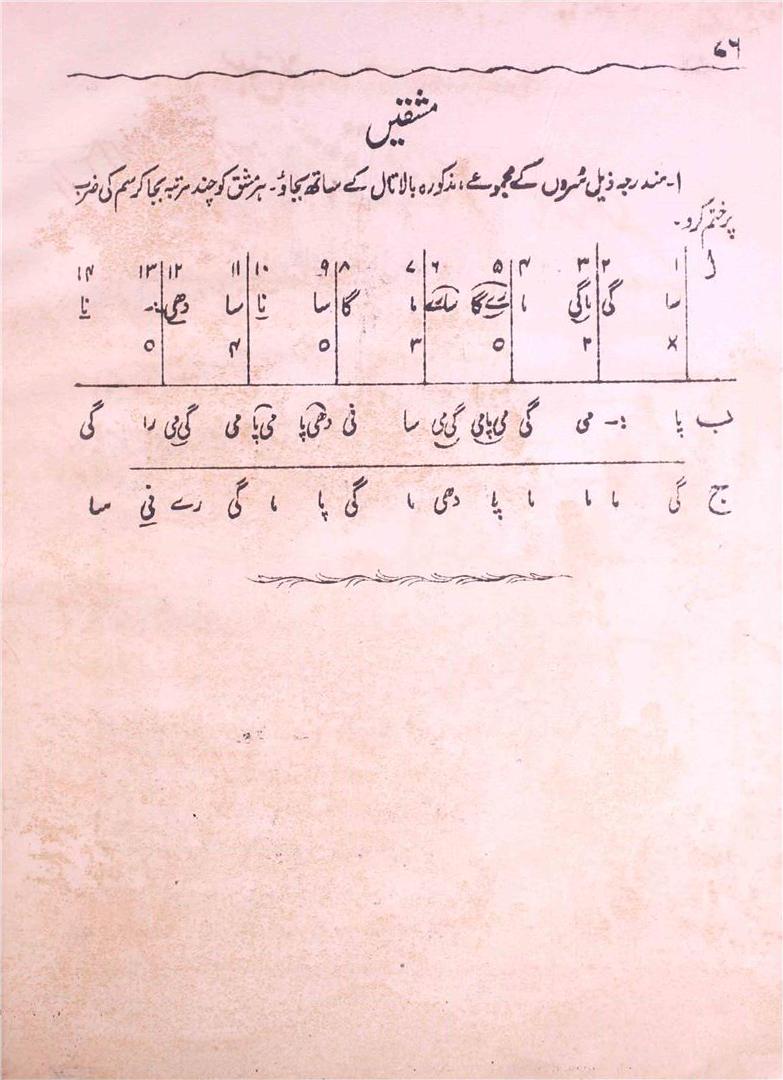 ۷۶
مشقیں
۱۔ مندرجہ ذیل سُروں کے مجموعے، مذکورہ بالا تال کے ساتھ بجاؤ۔ ہر مشق کو چند مرتبہ بجا کر سم کی ضرب
پر ختم کرو۔
ا ۱ ۲ ۳ ۴ ۵ ۶ ۷ ۸ ۹ ۱۰ ۱۱ ۱۲ ۱۳ ۱۴
سا گی ماگی ما رے گا ما گا سا نا سا دھی :- نا
x ۲ ۵ ۳ ۵ ۴ ۵
ب پا :- می گی می پا می گی می سا نی دھی پا می پا می گی می را گی
ج گی ما ما ما پا دھی ما گی پا ما گی رے نی سا